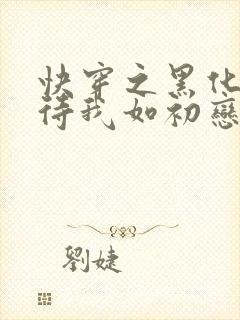 快穿之黑化
待我如初戀
劉婕